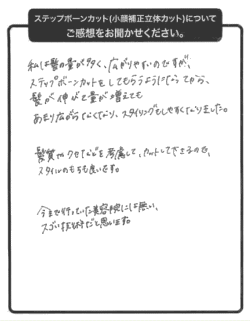 ステップボーンカット(小顔補正立体カット)について
ご感想をお聞かせください。
私は髪の量が多く、広がりやすいのですが、
ステップボーンカットをしてもらうようになってから、
髪が伸びて量が増えても
あまり広がらなくなり、スタイリングもしやすくなりました。
髪質やクセなどを考慮して、カットして下さるので、
スタイルのもちも良いです。
今まで行っていた美容院には無い、
スゴい技術だと思います。